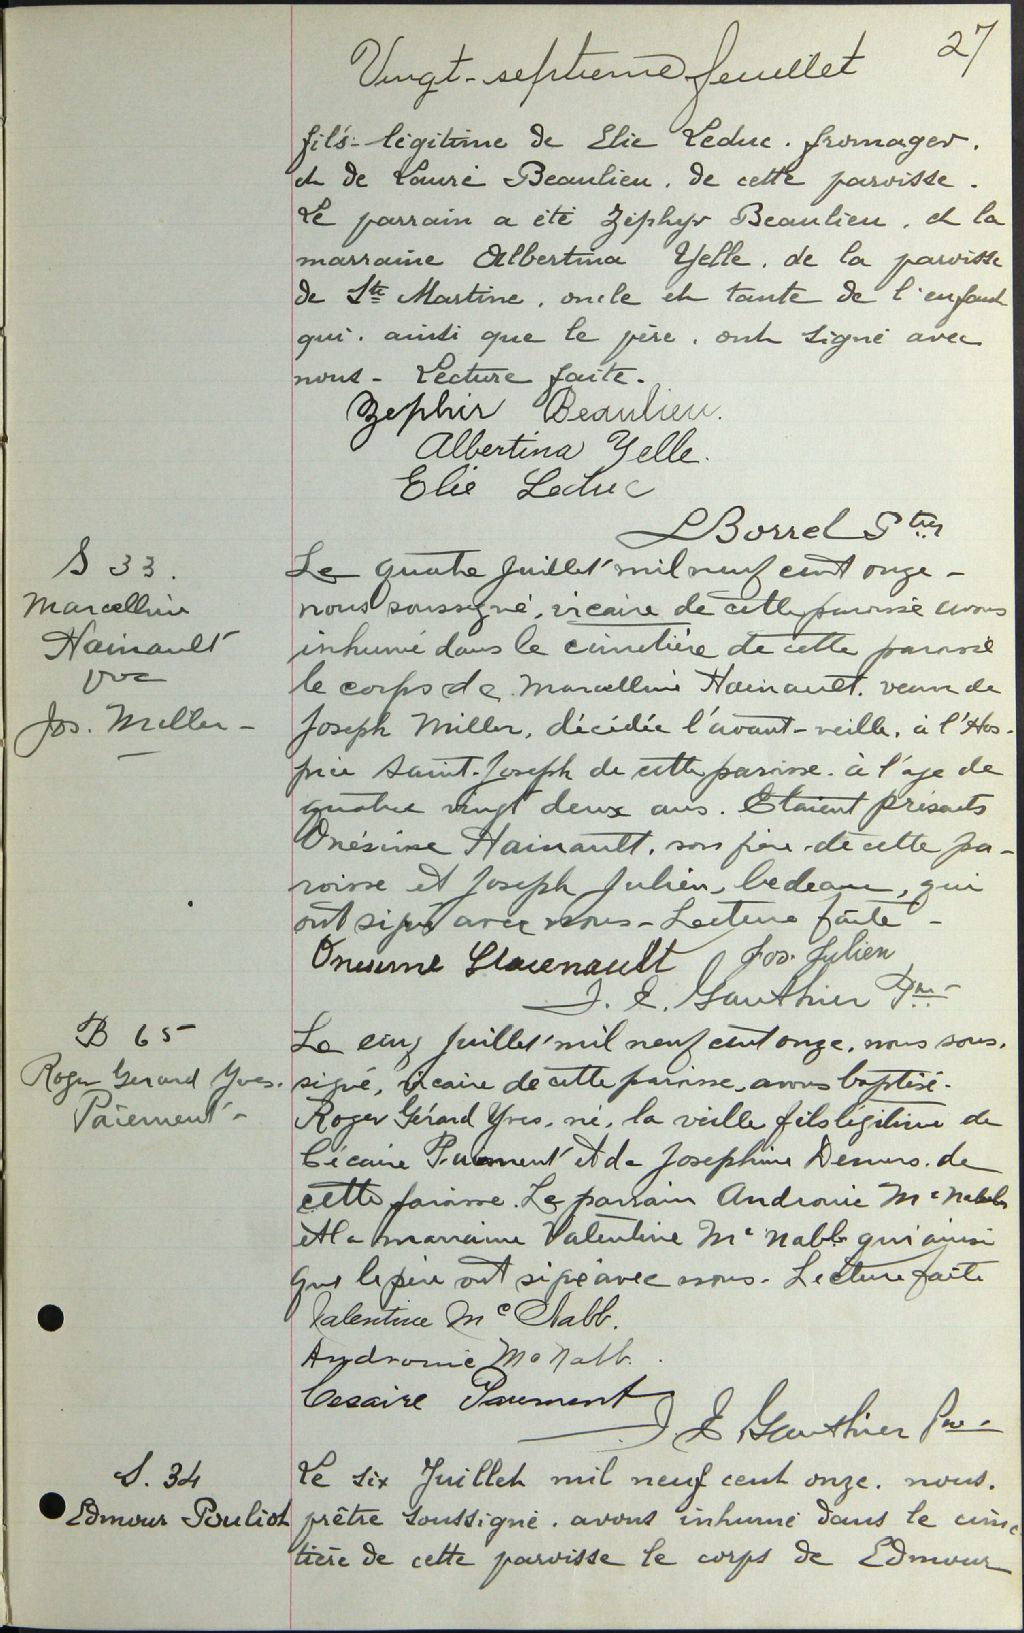 27
Vingt-septième feuillet
fils légitime de Elie Leduc, fromager,
et de Laure Beaulieu, de cette paroisse.
Le parrain a été Zéphyr Beaulieu, et la
marraine Albertina Yelle, de la paroisse
de Ste Martine, oncle et tante de l'enfant
qui, ainsi que le père, ont signé avec
nous - Lecture faite.
Zephir Beaulieu.
Albertina Yelle.
Elie Leduc
L Borrel Ptre
S 33.
Marcelline
Hainault
Vve
Jos. Miller -
Le quatre Juillet mil neuf cent onze -
nous soussigné, vicaire de cette paroisse avons
inhumé dans le cimetière de cette paroisse
le corps de Marcelline Hainault, veuve de
Joseph Miller, décédée l'avant-veille, à l'Hos-
pice Saint-Joseph de cette paroisse, à l'age de
quatre vingt deux ans. Etaient présents
Onésime Hainault, son frère de cette pa-
roisse et Joseph Julien, bedeau, qui
ont signé avec nous - Lecture faite -
Onesime Hainault Jos. Julien
J. E. Gauthier Ptre -
B 65
Roger Gerard Yves.
Paiement -
Le cinq Juillet mil neuf cent onze, nous sous-
signé, vicaire de cette paroisse, avons baptisé
Roger Gérard Yves, né, la veille fils légitime de
Cécaire Paiement et de Josephine Demers, de
cette paroisse. Le parrain Andronie Mc Nabb
et la marraine Valentine Mc Nabb qui ainsi
que le père ont signé avec nous - Lecture faite
Valentine Mc Nabb.
Andronie Mc Nabb.
Cesaire Paiement
J E Gauthier Ptre -
S. 34
Edmour Pouliot
Le six Juillet mil neuf cent onze, nous,
prêtre soussigné, avons inhumé dans le cime
tière de cette paroisse le corps de Edmour